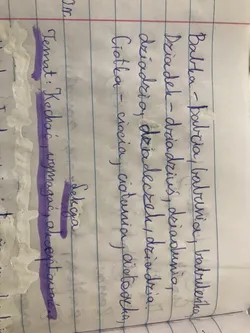 Babka - babcia, babunia, babuleńka
Dziadek - dziadziuś, dziadunio,
dziadzio, dziadeczek, dziadzia.
Ciotka - ciocia, ciotunia, cioteczka,
Lekcja
Temat: Kochać, wymagać, akceptować